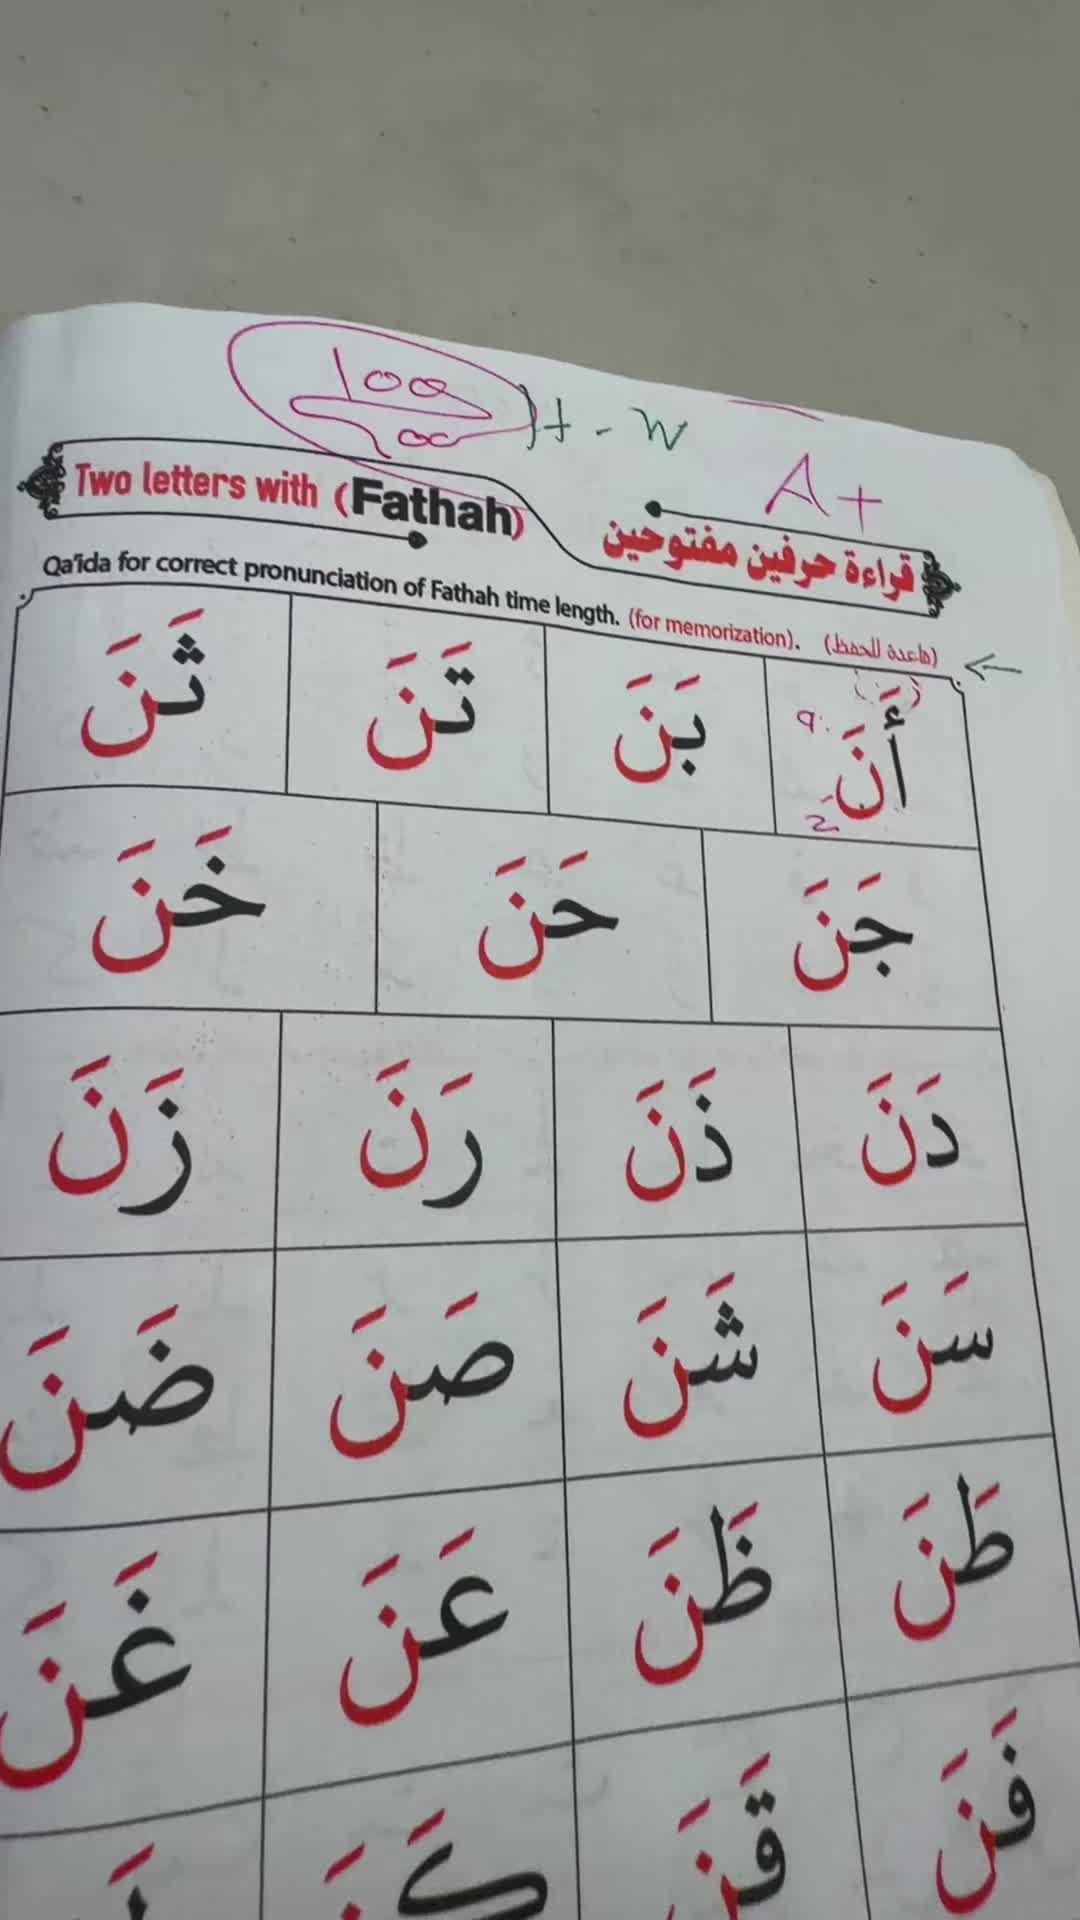 100
100
H - W
A+
Two letters with (Fathah)
قراءة حرفين مفتوحين
Qa'ida for correct pronunciation of Fathah time length. (for memorization). (قاعدة للحفظ)
أَنَ بَنَ تَنَ ثَنَ
جَنَ حَنَ خَنَ
دَنَ ذَنَ رَنَ زَنَ
سَنَ شَنَ صَنَ ضَنَ
طَنَ ظَنَ عَنَ غَنَ
فَنَ قَنَ كَنَ